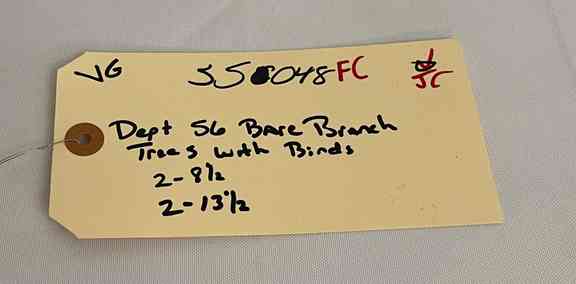 VG 558048 FC JC
Dept 56 Bare Branch
Trees with Birds
2-8½
2-13½